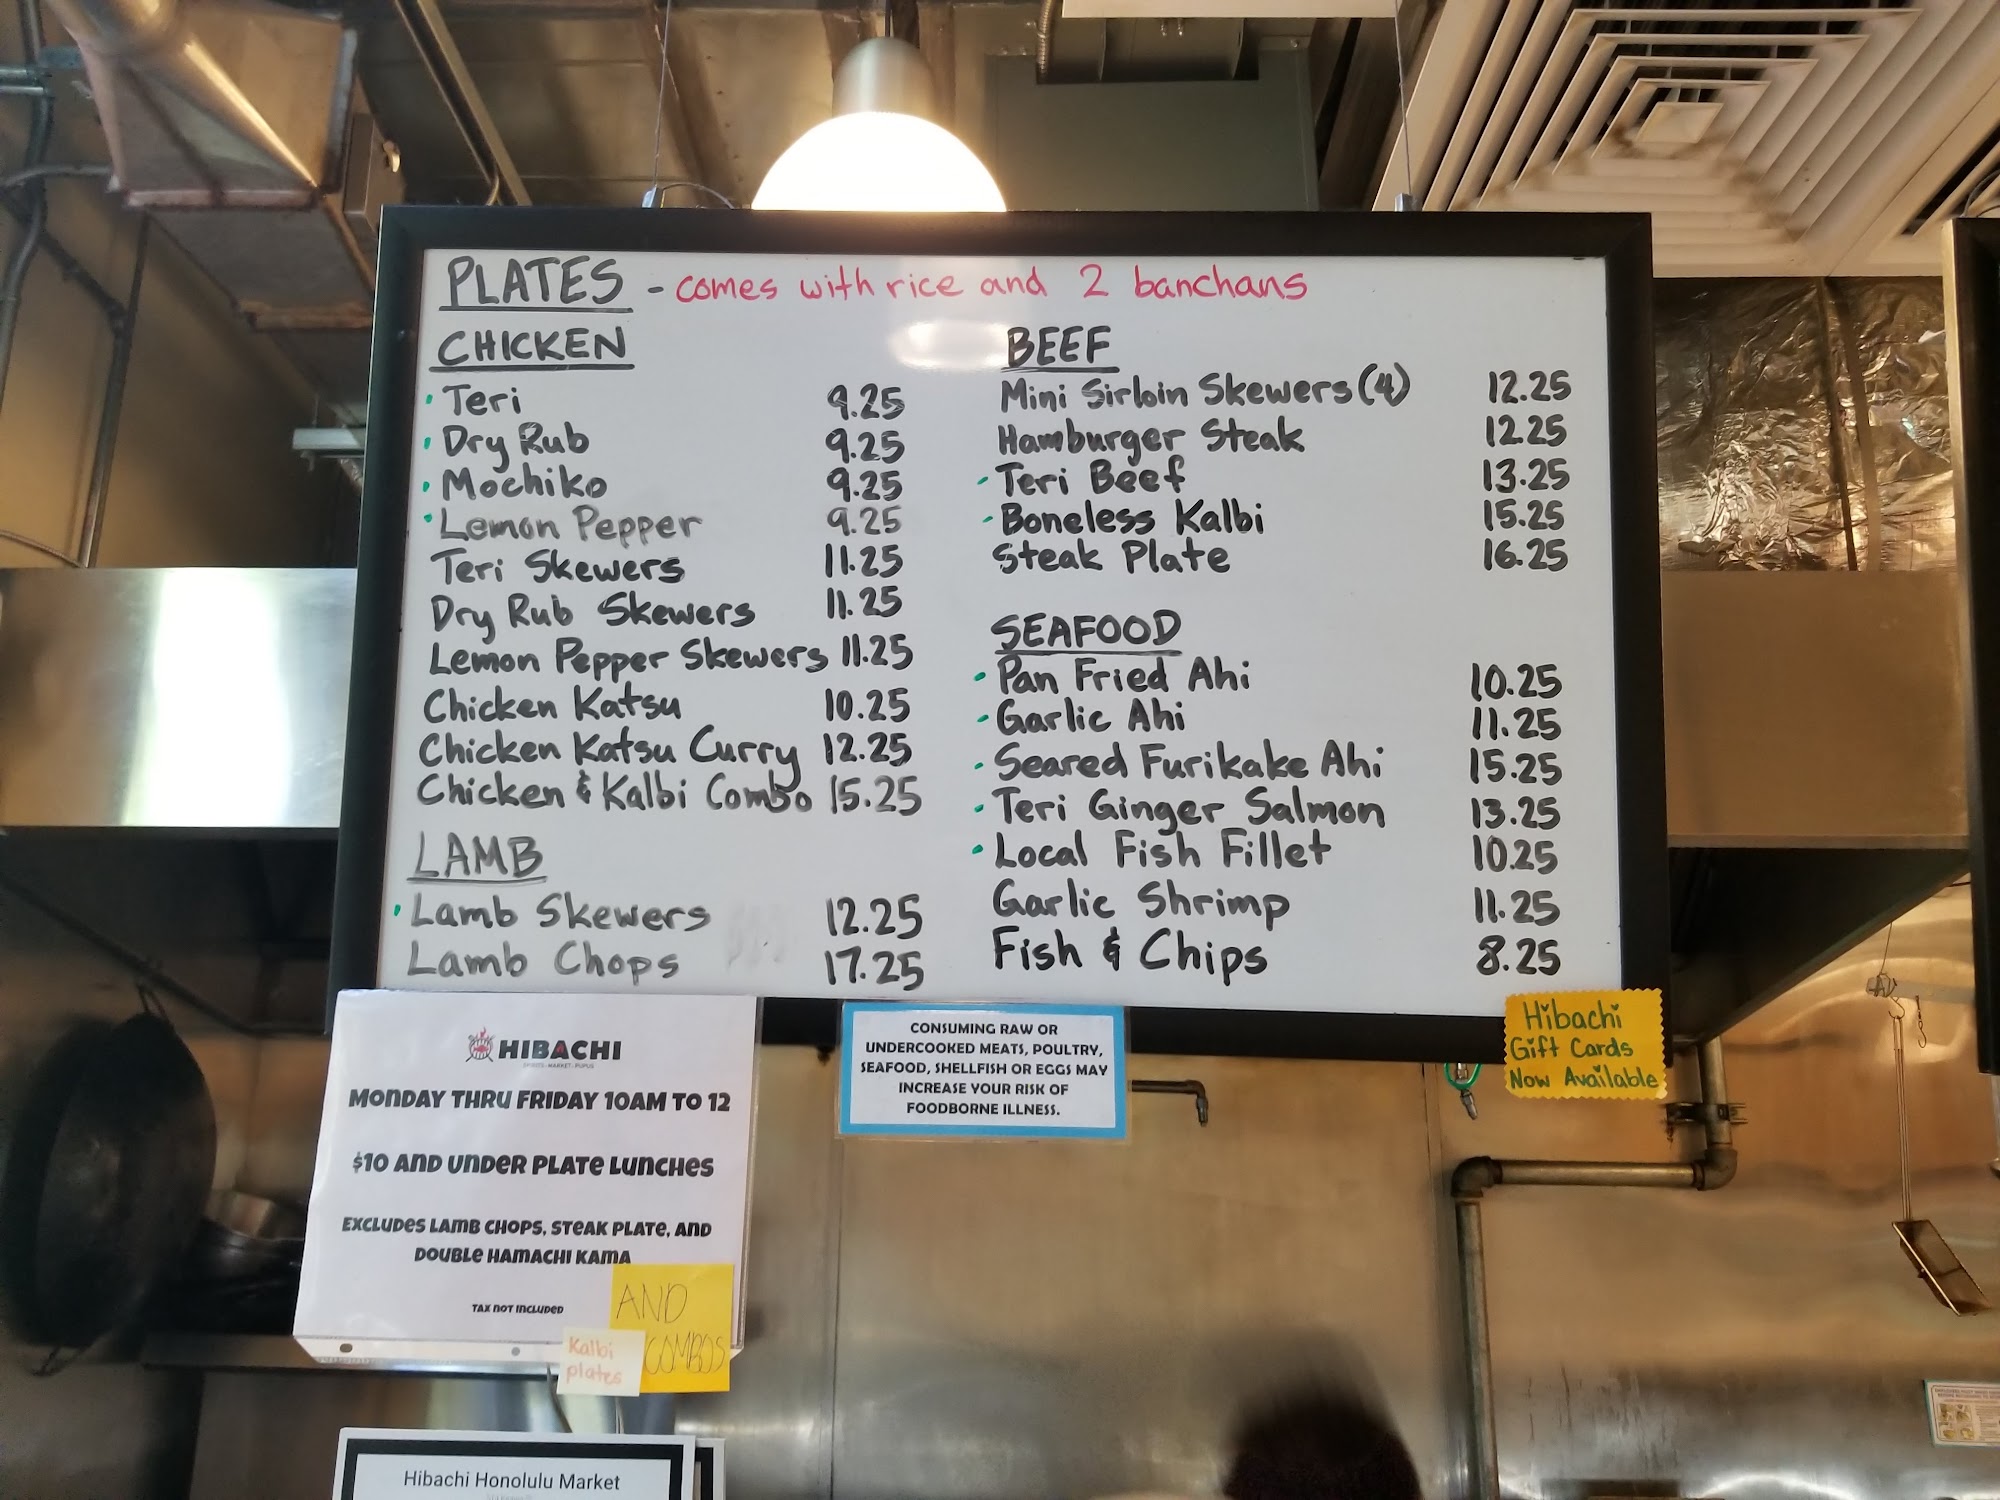 PLATES - comes with rice and 2 banchans
CHICKEN
· Teri 9.25
· Dry Rub 9.25
· Mochiko 9.25
· Lemon Pepper 9.25
Teri Skewers 11.25
Dry Rub Skewers 11.25
Lemon Pepper Skewers 11.25
Chicken Katsu 10.25
Chicken Katsu Curry 12.25
Chicken & Kalbi Combo 15.25
LAMB
· Lamb Skewers 12.25
Lamb Chops 17.25
BEEF
Mini Sirloin Skewers (4) 12.25
Hamburger Steak 12.25
- Teri Beef 13.25
- Boneless Kalbi 15.25
Steak Plate 16.25
SEAFOOD
· Pan Fried Ahi 10.25
· Garlic Ahi 11.25
· Seared Furikake Ahi 15.25
· Teri Ginger Salmon 13.25
· Local Fish Fillet 10.25
Garlic Shrimp 11.25
Fish & Chips 8.25
HIBACHI
MONDAY THRU FRIDAY 10AM TO 12
$10 AND UNDER PLATE LUNCHES
EXCLUDES LAMB CHOPS, STEAK PLATE, AND
DOUBLE HAMACHI KAMA
TAX NOT INCLUDED
AND
COMBOS
Kalbi
plates
CONSUMING RAW OR
UNDERCOOKED MEATS, POULTRY,
SEAFOOD, SHELLFISH OR EGGS MAY
INCREASE YOUR RISK OF
FOODBORNE ILLNESS.
Hibachi
Gift Cards
Now Available
Hibachi Honolulu Market